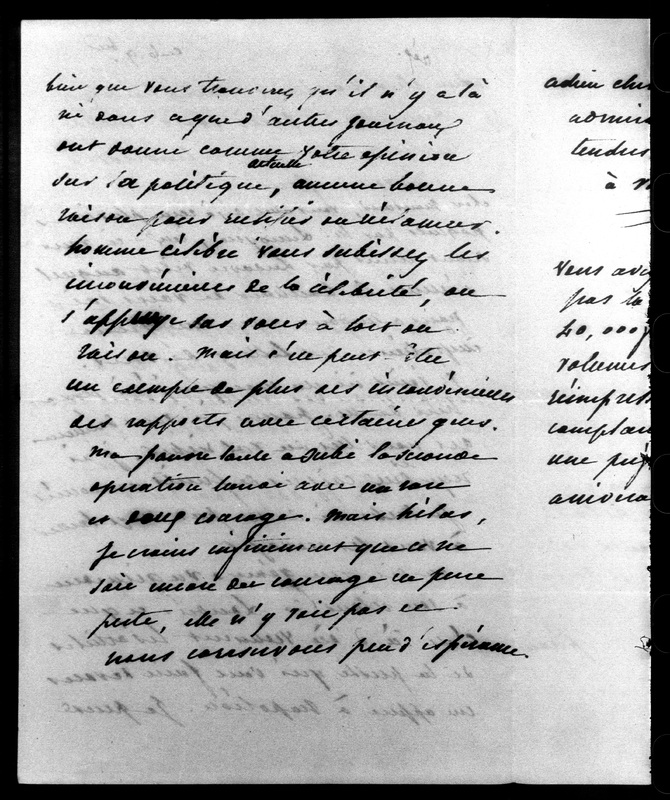 bien que vous trouverez qu'il n'y a là
ni dans ce que d'autres journaux
ont donné comme votre opinion
actuelle
sur la politique, aucune bonne
raison pour
homme célèbre vous subissez les
inconvénients de la célébrité, on
s'appuye sur vous à tort ou
raison. Mais c'est peut être
un exemple de plus des inconvénients
des rapports avec certaines gens.
Ma pauvre tante a subi la seconde
opération lundi avec un rare
et doux courage. Mais hélas,
je crains infiniment que ce ne
soit encore du courage en pure
perte, elle n'y voit pas et
nous conservons peu d'espérance.
adieu cher
admir
tendres
à
Vous avez
pas la
40,000 f
volumes
réimpress
comptant
une préf